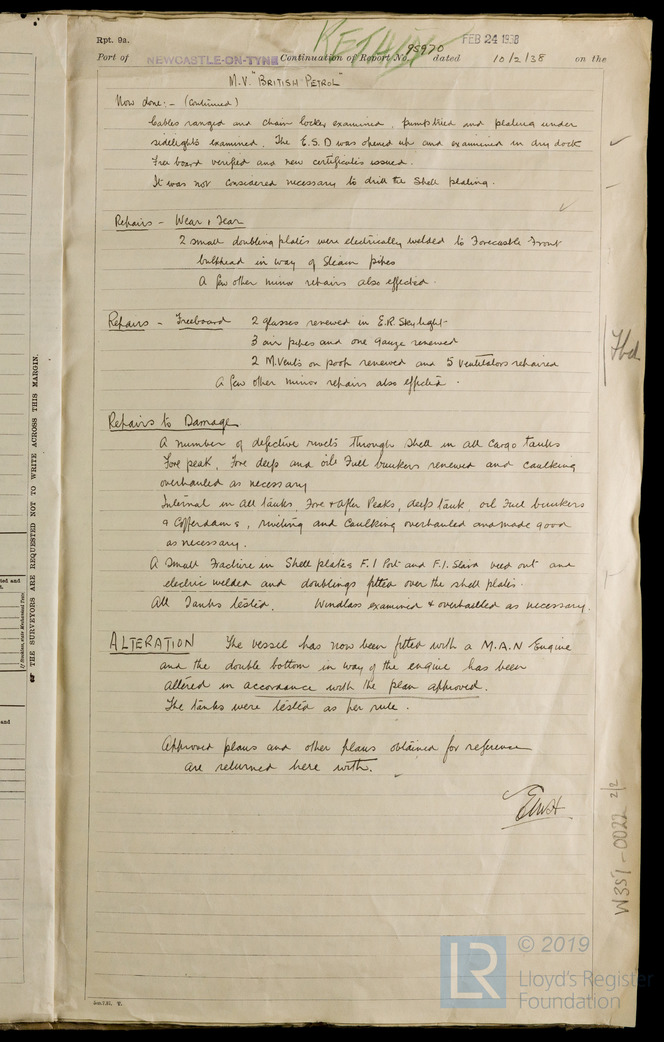 Rpt. 9a.
RETAIN
FEB 24 1938
Port of NEWCASTLE-ON-TYNE Continuation of Report No. 95970 dated 10/2/38 on the
M.V. "BRITISH PETROL"
Now done:- (continued)
Cables ranged and chain locker examined, pumps tried and plating under
sidelights examined. The E.S.D was opened up and examined in dry dock
Free board verified and new certificates issued.
It was not considered necessary to drill the Shell plating.
Repairs - Wear & Tear
2 small doubling plates were electrically welded to Forecastle Front
bulkhead in way of Steam pipes
A few other minor repairs also effected.
Repairs - Freeboard 2 glasses renewed in E.R. Skylight
3 air pipes and one gauze renewed
2 M.Vents on poop renewed and 5 ventilators repaired
A few other minor repairs also effected.
Fbd
Repairs to Damage
A number of defective rivets through Shell in all Cargo tanks
Fore peak, Fore deep and oil Fuel bunkers renewed and caulking
overhauled as necessary
Internal in all tanks, Fore & After Peaks, deep tank, oil Fuel bunkers
& Cofferdams, riveting and Caulking overhauled and made good
as necessary.
A Small Fracture in Shell plates F.1 Port and F.1. Starb veed out and
electric welded and doublings fitted over the shell plates.
All Tanks tested. Windlass examined & overhauled as necessary.
ALTERATION The vessel has now been fitted with a M.A.N Engine
and the double bottom in way of the engine has been
altered in accordance with the plan approved.
The tanks were tested as per rule.
Approved plans and other plans obtained for reference
are returned here with.
W351-0022 2/2
THE SURVEYORS ARE REQUESTED NOT TO WRITE ACROSS THIS MARGIN.
© 2019
LR
Lloyd's Register
Foundation